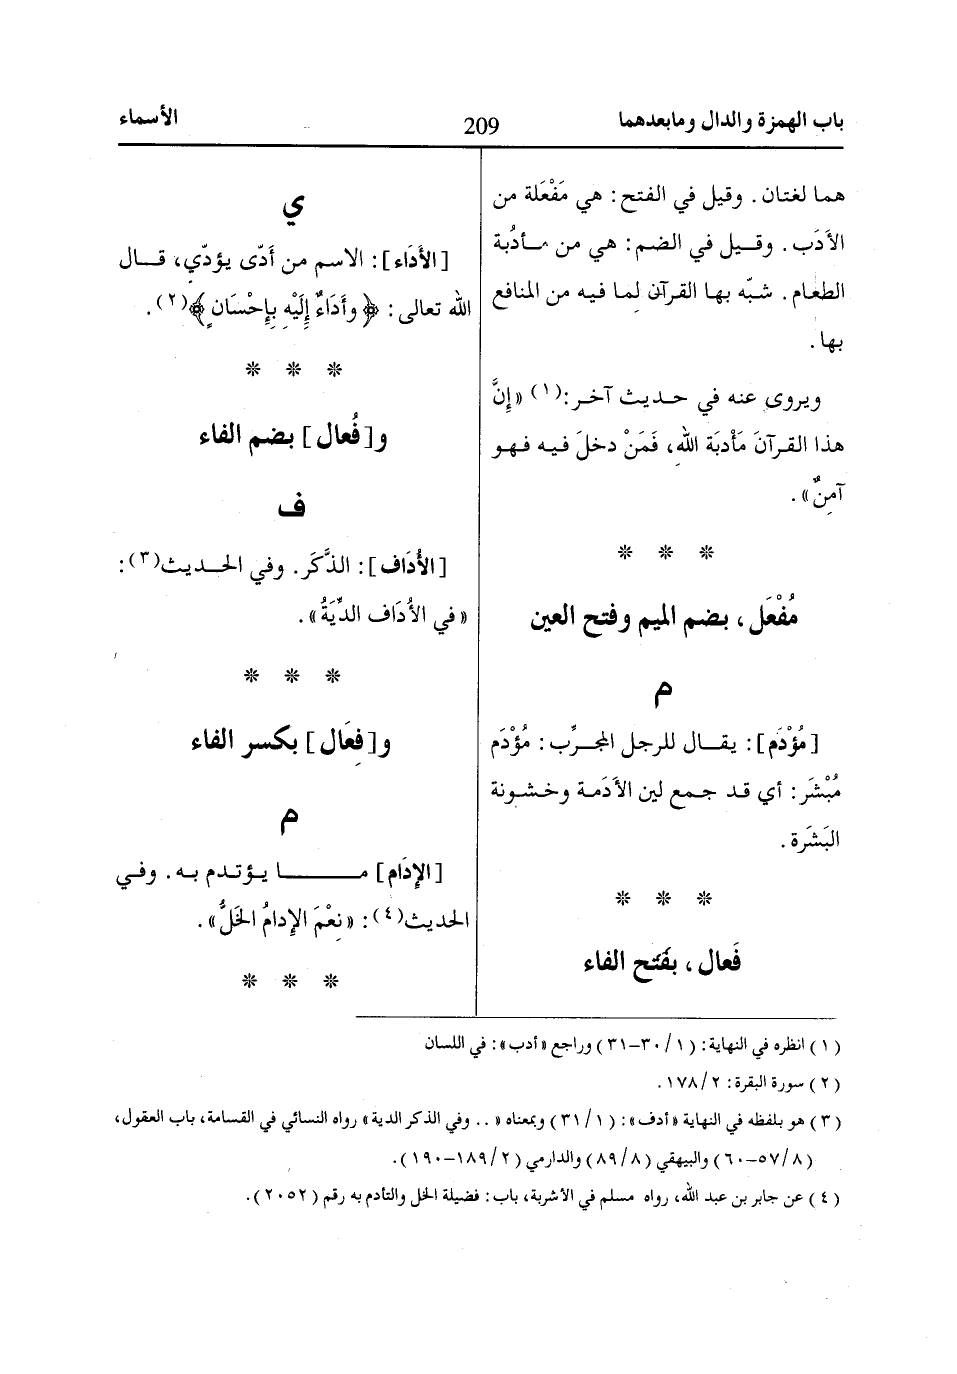 باب الهمزة والدال ومابعدهما
209
الأسماء
هما لغتان. وقيل في الفتح: هي مَفْعَلة من
الأدَب. وقيل في الضم: هي من مأدُبة
الطعام. شبّه بها القرآن لما فيه من المنافع
بها.
ويروى عنه في حديث آخر:(١) «إنَّ
هذا القرآنَ مَأْدبَة اللهِ، فَمَنْ دخلَ فيه فهو
آمِنٌ».
* * *
مُفْعَل، بضم الميم وفتح العين
م
[مُؤْدَم]: يقال للرجل المجرِّب: مُؤْدَم
مُبْشَر: أي قد جمع لين الأَدَمة وخشونة
البَشَرة.
* * *
فَعال، بفَتح الفاء
ي
[الأَدَاء]: الاسم من أدّى يؤدّي، قال
الله تعالى: ﴿وأَدَاءٌ إِلَيْهِ بِإِحْسَانٍ﴾(٢).
* * *
و[فُعال] بضم الفاء
ف
[الأُدَاف]: الذَّكَر. وفي الحديث(٣):
«في الأُدَاف الدِّيَةُ».
* * *
و[فِعَال] بكسر الفاء
م
[الإدَام] ما يؤتدم به. وفي
الحديث(٤): «نِعْمَ الإدامُ الخَلُّ».
* * *
(١) انظره في النهاية: (١/ ٣٠–٣١) وراجع «أدب»: في اللسان
(٢) سورة البقرة: ٢/ ١٧٨.
(٣) هو بلفظه في النهاية «أدف»: (١/ ٣١) وبمعناه «.. وفي الذكر الدية» رواه النسائي في القسامة، باب العقول،
(٨/ ٥٧–٦٠) والبيهقي (٨/ ٨٩) والدارمي (٢/ ١٨٩–١٩٠).
(٤) عن جابر بن عبد الله، رواه مسلم في الأشربة، باب: فضيلة الخل والتأدم به رقم (٢٠٥٢).